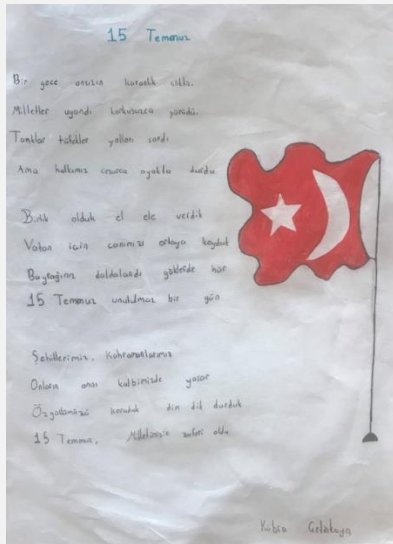 15 Temmuz
Bir gece ansızın karanlık çöktü.
Milletler uyandı korkusuzca yürüdü.
Tanklar tüfekler yolları sardı
Ama halkımız cesurca ayakta durdu
Birlik olduk el ele verdik
Vatan için canımızı ortaya koyduk
Bayrağımız dalgalandı göklerde hür
15 Temmuz unutulmaz bir gün
Şehitlerimiz, Kahramanlarımız
Onların anısı kalbimizde yaşar
Özgürlüğümüzü koruduk dim dik durduk
15 Temmuz, Milletimizin zaferi oldu
Kübra